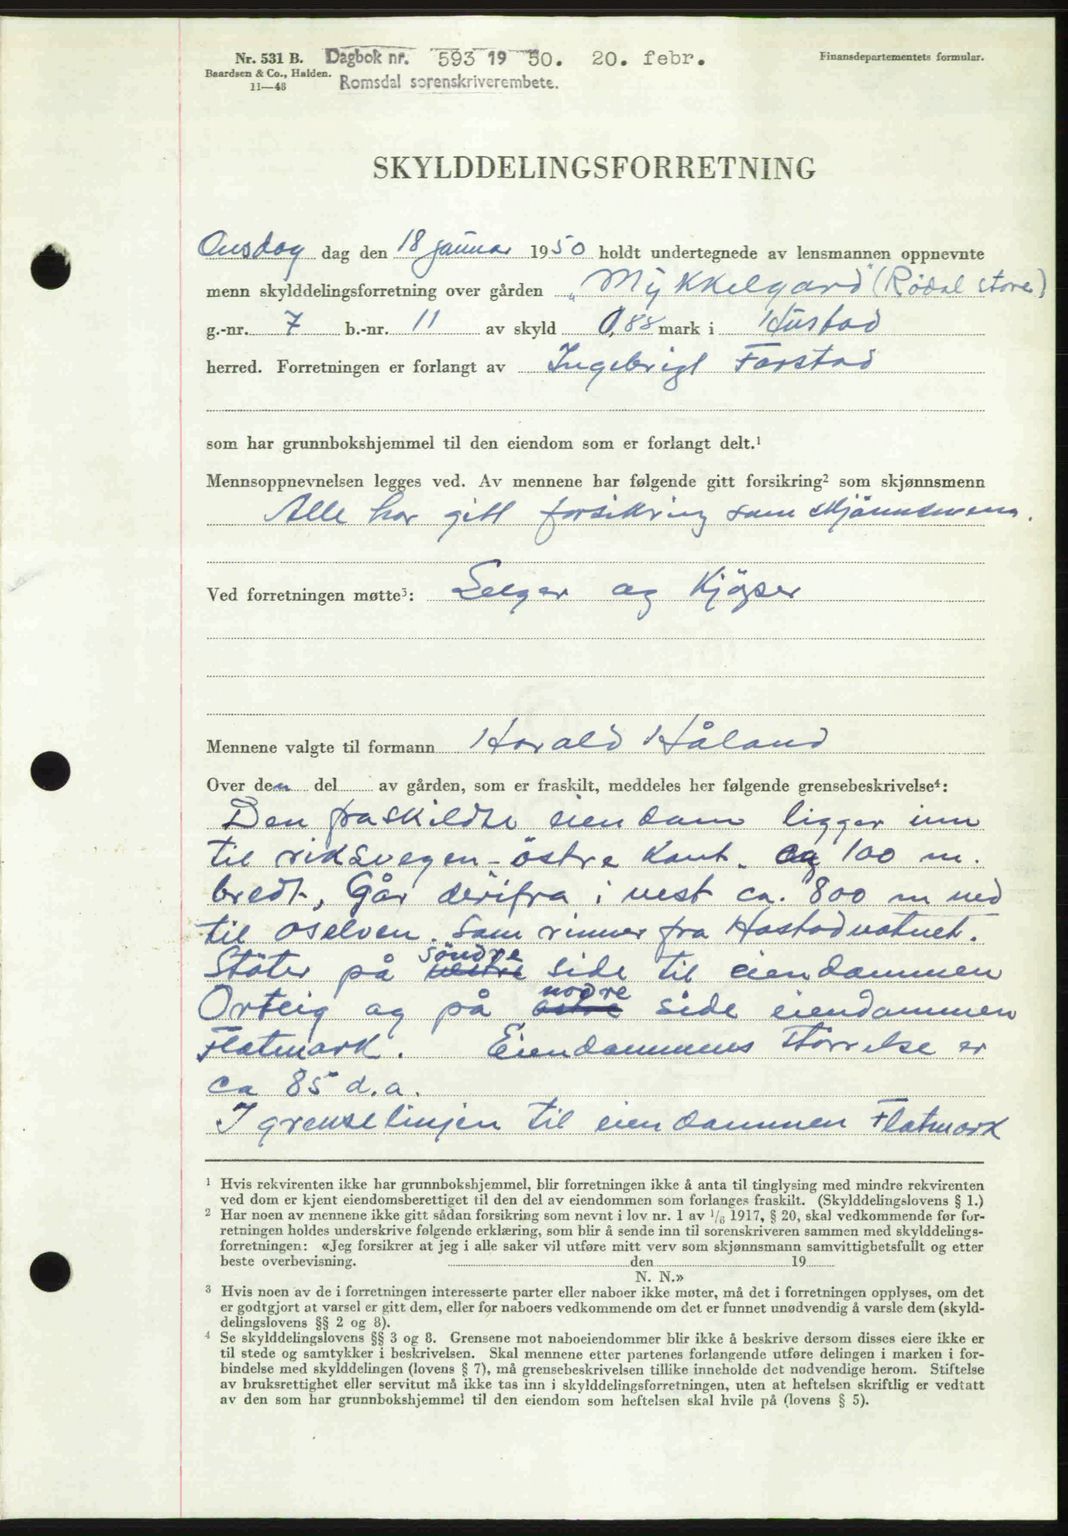 Nr. 531 B. Dagbok nr. 593 19 50. 20. febr. Finansdepartementets formular.
Baardsen & Co., Halden.
11—48 Romsdal sorenskriverembete.
SKYLDDELINGSFORRETNING
Onsdag dag den 18 januar 1950 holdt undertegnede av lensmannen oppnevnte
menn skylddelingsforretning over gården „Mykkelgard" (Rödal store)
g.-nr. 7 b.-nr. 11 av skyld 0,88 mark i Hustad
herred. Forretningen er forlangt av Ingebrigt Farstad
som har grunnbokshjemmel til den eiendom som er forlangt delt.¹
Mennsoppnevnelsen legges ved. Av mennene har følgende gitt forsikring² som skjønnsmenn
Alle har gitt forsikring som skjönnsmenn.
Ved forretningen møtte³: Selger og Kjöper
Mennene valgte til formann Harald Håland
Over den del av gården, som er fraskilt, meddeles her følgende grensebeskrivelse⁴:
Den fraskildte eiendom ligger inn
til riksvegen - östre kant. ca 100 m.
bredt, Går derifra i vest ca. 800 m ned
til oselven. Som rinner fra Hostadvatnet.
söndre
Støter på vestre side til eiendommen
nodre
Orteig og på östre side eiendommen
Flatmark. Eiendommens størrelse er
ca 85 d.a.
I grenselinjen til eiendommen Flatmark
¹ Hvis rekvirenten ikke har grunnbokshjemmel, blir forretningen ikke å anta til tinglysing med mindre rekvirenten
ved dom er kjent eiendomsberettiget til den del av eiendommen som forlanges fraskilt. (Skylddelingslovens § 1.)
² Har noen av mennene ikke gitt sådan forsikring som nevnt i lov nr. 1 av 1/6 1917, § 20, skal vedkommende før for-
retningen holdes underskrive følgende erklæring, som blir å sende inn til sorenskriveren sammen med skylddelings-
forretningen: «Jeg forsikrer at jeg i alle saker vil utføre mitt verv som skjønnsmann samvittighetsfullt og etter
beste overbevisning. den 19
N. N.»
³ Hvis noen av de i forretningen interesserte parter eller naboer ikke møter, må det i forretningen opplyses, om det
er godtgjort at varsel er gitt dem, eller for naboers vedkommende om det er funnet unødvendig å varsle dem (skyld-
delingslovens §§ 2 og 8).
⁴ Se skylddelingslovens §§ 3 og 8. Grensene mot naboeiendommer blir ikke å beskrive dersom disses eiere ikke er
til stede og samtykker i beskrivelsen. Skal mennene etter partenes forlangende utføre delingen i marken i for-
bindelse med skylddelingen (lovens § 7), må grensebeskrivelsen tillike inneholde det nødvendige herom. Stiftelse
av bruksrettighet eller servitut må ikke tas inn i skylddelingsforretningen, uten at heftelsen skriftlig er vedtatt
av den som har grunnbokshjemmel til den eiendom som heftelsen skal hvile på (lovens § 5).